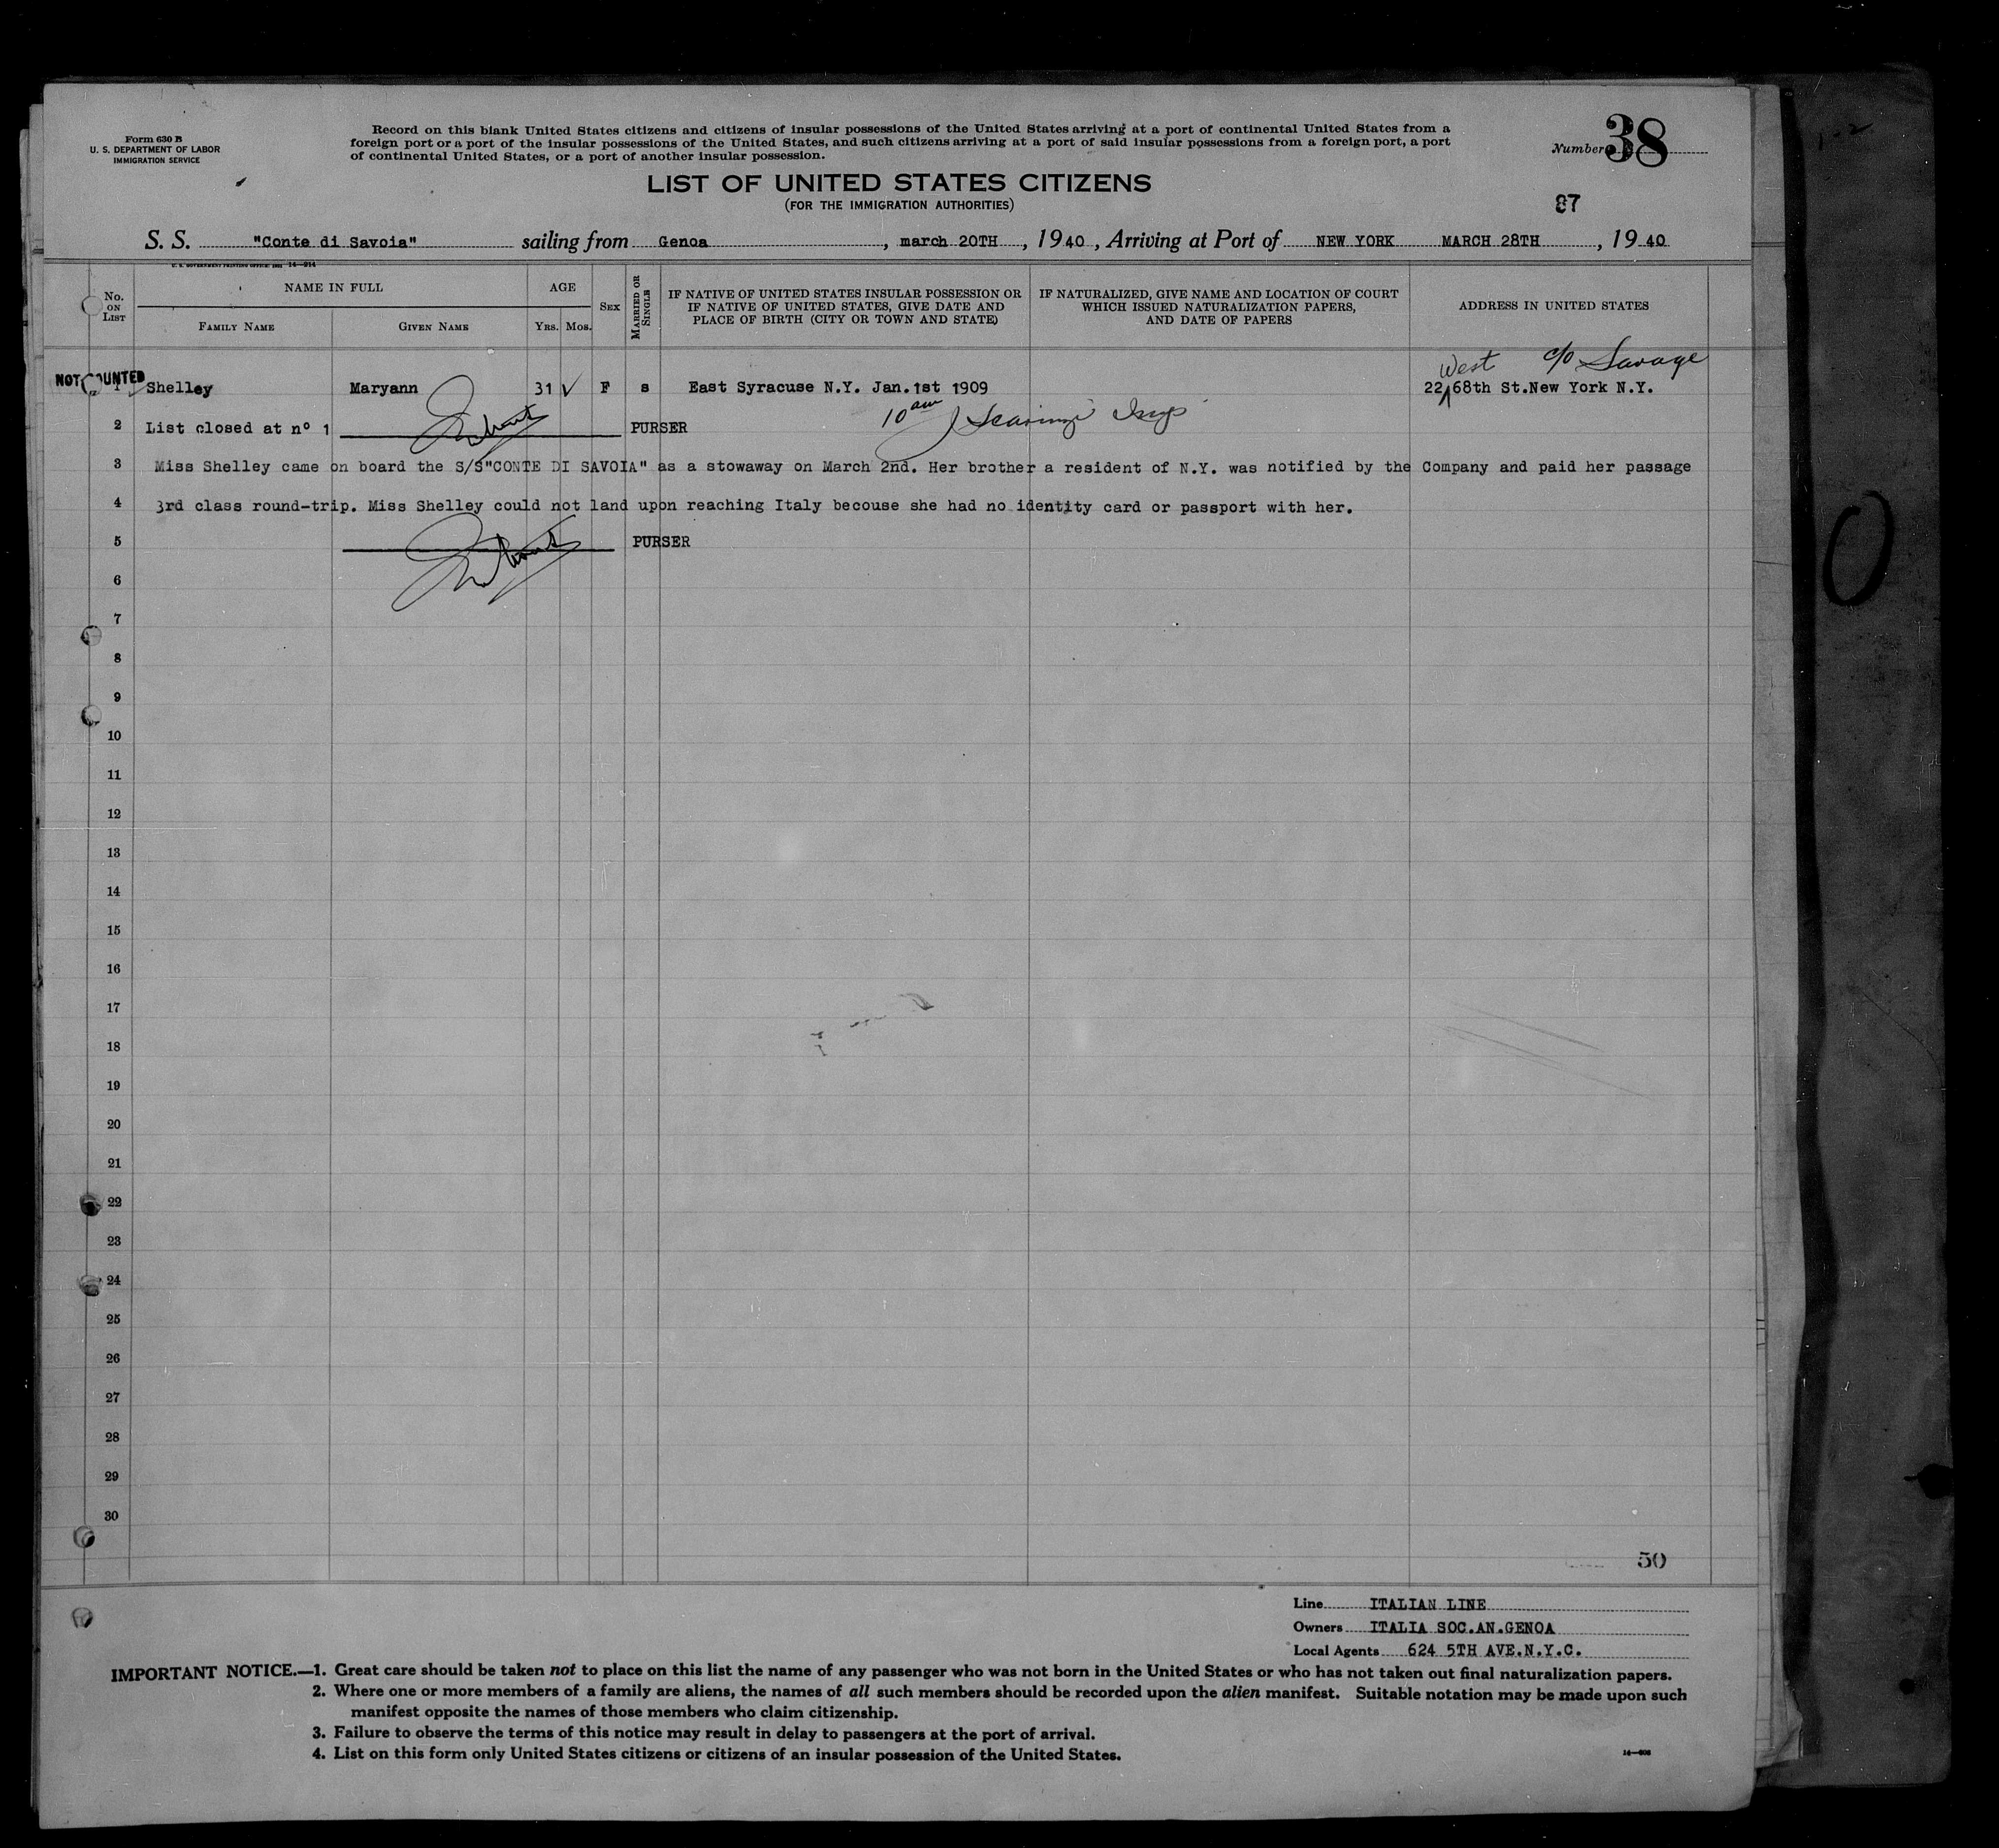 Form 630 B
U. S. DEPARTMENT OF LABOR
IMMIGRATION SERVICE
Record on this blank United States citizens and citizens of insular possessions of the United States arriving at a port of continental United States from a
foreign port or a port of the insular possessions of the United States, and such citizens arriving at a port of said insular possessions from a foreign port, a port
of continental United States, or a port of another insular possession.
Number 38
LIST OF UNITED STATES CITIZENS
(FOR THE IMMIGRATION AUTHORITIES)
87
S. S. "Conte di Savoia" sailing from Genoa , march 20TH , 1940 , Arriving at Port of NEW YORK MARCH 28TH , 1940
No. ON LIST
NAME IN FULL
FAMILY NAME
GIVEN NAME
AGE
YRS. MOS.
SEX
MARRIED OR SINGLE
IF NATIVE OF UNITED STATES INSULAR POSSESSION OR
IF NATIVE OF UNITED STATES, GIVE DATE AND
PLACE OF BIRTH (CITY OR TOWN AND STATE)
IF NATURALIZED, GIVE NAME AND LOCATION OF COURT
WHICH ISSUED NATURALIZATION PAPERS,
AND DATE OF PAPERS
ADDRESS IN UNITED STATES
West c/o Savage
NOT COUNTED
1 Shelley Maryann 31 F s East Syracuse N.Y. Jan.1st 1909 22 68th St.New York N.Y.
2 List closed at nº 1 PURSER 10 am
3 Miss Shelley came on board the S/S"CONTE DI SAVOIA" as a stowaway on March 2nd. Her brother a resident of N.Y. was notified by the Company and paid her passage
4 3rd class round-trip. Miss Shelley could not land upon reaching Italy becouse she had no identity card or passport with her.
5 PURSER
6
7
8
9
10
11
12
13
14
15
16
17
18
19
20
21
22
23
24
25
26
27
28
29
30
50
Line ITALIAN LINE
Owners ITALIA SOC.AN.GENOA
Local Agents 624 5TH AVE.N.Y.C.
IMPORTANT NOTICE.—1. Great care should be taken not to place on this list the name of any passenger who was not born in the United States or who has not taken out final naturalization papers.
2. Where one or more members of a family are aliens, the names of all such members should be recorded upon the alien manifest. Suitable notation may be made upon such
manifest opposite the names of those members who claim citizenship.
3. Failure to observe the terms of this notice may result in delay to passengers at the port of arrival.
4. List on this form only United States citizens or citizens of an insular possession of the United States.